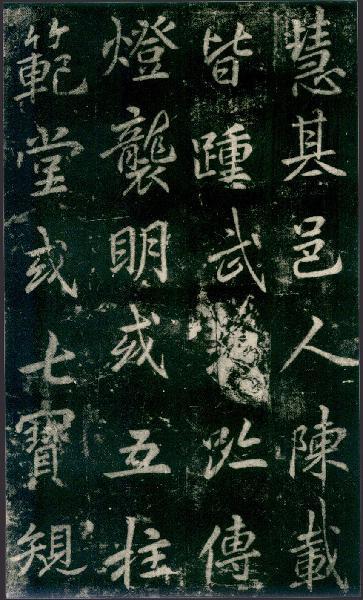 慧其邑人陳載
皆踵武趾傳
燈襲明或五柱
範堂或七寶規